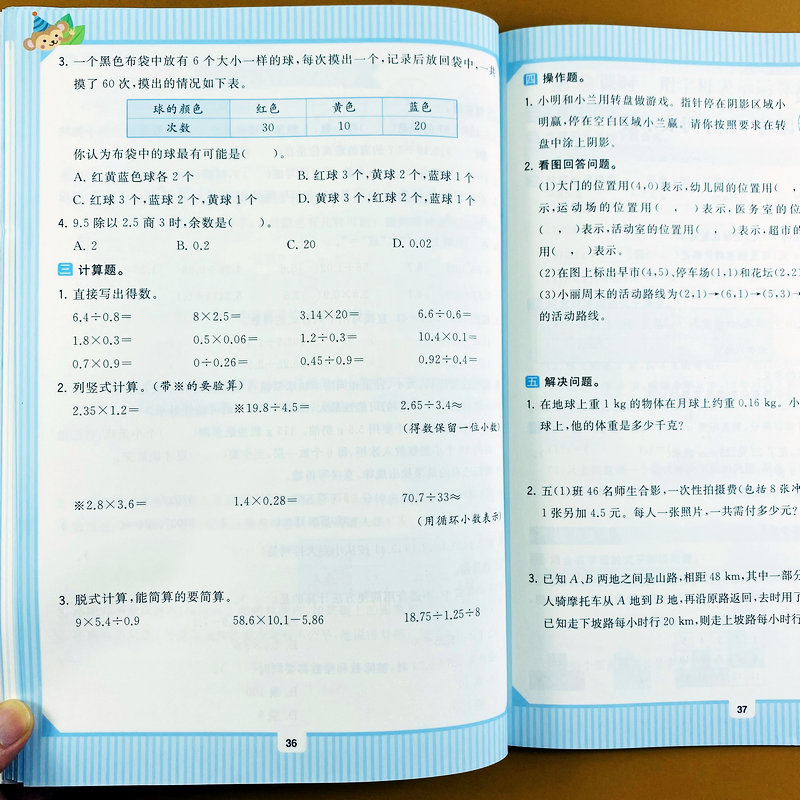 3. 一个黑色布袋中放有 6 个大小一样的球,每次摸出一个,记录后放回袋中,一共
摸了 60 次,摸出的情况如下表。
球的颜色 红色 黄色 蓝色
次数 30 10 20
你认为布袋中的球最有可能是( )。
A. 红黄蓝色球各 2 个 B. 红球 3 个,黄球 2 个,蓝球 1 个
C. 红球 3 个,蓝球 2 个,黄球 1 个 D. 黄球 3 个,红球 2 个,蓝球 1 个
4. 9.5 除以 2.5 商 3 时,余数是( )。
A. 2 B. 0.2 C. 20 D. 0.02
三 计算题。
1. 直接写出得数。
6.4÷0.8= 8×2.5= 3.14×20= 6.6÷0.6=
1.8×0.3= 0.5×0.06= 1.2÷0.3= 10.4×0.1=
0.7×0.9= 0÷0.26= 0.45÷0.9= 0.92÷0.4=
2. 列竖式计算。(带※的要验算)
2.35×1.2= ※19.8÷4.5= 2.65÷3.4≈
(得数保留一位小数)
※2.8×3.6= 1.4×0.28= 70.7÷33≈
(用循环小数表示)
3. 脱式计算,能简算的要简算。
9×5.4÷0.9 58.6×10.1−5.86 18.75÷1.25÷8
36
四 操作题。
1. 小明和小兰用转盘做游戏。指针停在阴影区域小
明赢,停在空白区域小兰赢。请你按照要求在转
盘中涂上阴影。
2. 看图回答问题。
(1)大门的位置用(4,0)表示,幼儿园的位置用( ,
示,运动场的位置用( , )表示,医务室的位
( , )表示,活动室的位置用( , )表示,超市的
用( , )表示。
(2)在图上标出早市(4,5)、停车场(1,1)和花坛(2,2
(3)小丽周末的活动路线为(2,1)→(6,1)→(5,3)→
的活动路线。
五 解决问题。
1. 在地球上重 1 kg 的物体在月球上约重 0.16 kg。小
球上,他的体重是多少千克?
2. 五(1)班 46 名师生合影,一次性拍摄费(包括 8 张冲
1 张另加 4.5 元。每人一张照片,一共需付多少元?
3. 已知 A、B 两地之间是山路,相距 48 km,其中一部分
人骑摩托车从 A 地到 B 地,再沿原路返回,去时用了
已知走下坡路每小时行 20 km,则走上坡路每小时行
37